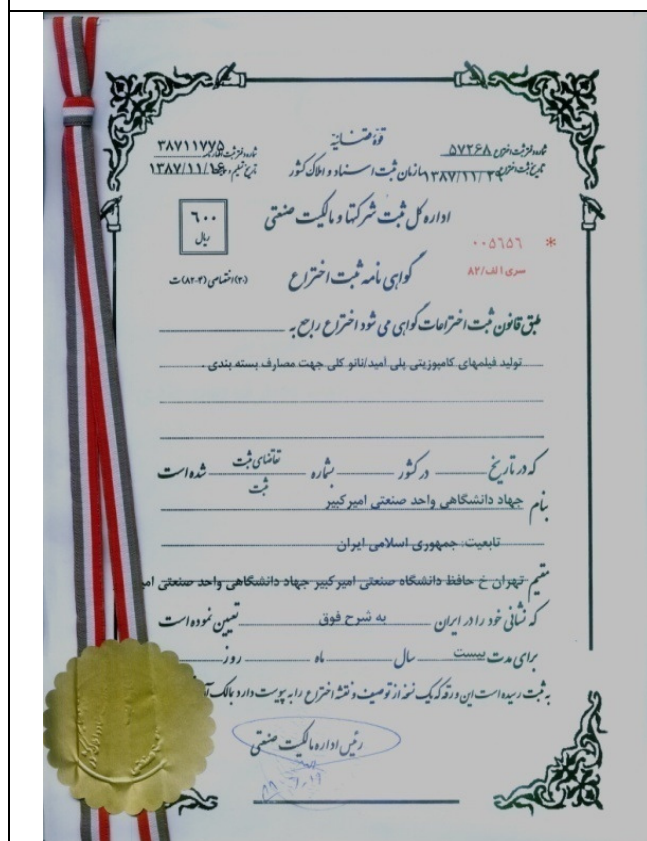 قوه قضائیه
شماره دفتر ثبت اختراع ۵۷۲۶۸
شماره دفتر ثبت اظهارنامه ۳۸۷۱۱۷۷۵
سازمان ثبت اسناد و املاک کشور
تاریخ ثبت اختراع
تاریخ تسلیم
اداره کل ثبت شرکتها و مالکیت صنعتی
۶۰۰
ریال
* ۰۰۵۶۵۶
سری الف/۸۲
گواهی نامه ثبت اختراع
طبق قانون ثبت اختراعات گواهی می شود اختراع راجع به
تولید فیلمهای کامپوزیتی پلی آمید/نانو کلی جهت مصارف بسته بندی .
که در تاریخ در کشور بشماره تقاضای ثبت شده است
ثبت
بنام جهاد دانشگاهی واحد صنعتی امیرکبیر
تابعیت: جمهوری اسلامی ایران
مقیم تهران خ حافظ دانشگاه صنعتی امیرکبیر جهاد دانشگاهی واحد صنعتی امی
که نشانی خود را در ایران به شرح فوق تعیین نموده است
برای مدت بیست سال ماه روز
به ثبت رسیده است این ورقه که یک نسخه از توصیف و نقشه اختراع را به پیوست دارد بمالک آ
رئیس اداره مالکیت صنعتی